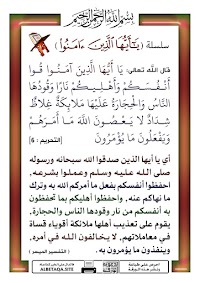 بسم الله الرحمن الرحيم
سلسلة ( يَٰٓأَيُّهَا ٱلَّذِينَ ءَامَنُوا۟ )
قال الله تعالى: يَا أَيُّهَا الَّذِينَ آمَنُوا قُوا
أَنْفُسَكُمْ وَأَهْلِيكُمْ نَارًا وَقُودُهَا
النَّاسُ وَالْحِجَارَةُ عَلَيْهَا مَلَائِكَةٌ غِلَاظٌ
شِدَادٌ لَا يَعْصُونَ اللَّهَ مَا أَمَرَهُمْ
وَيَفْعَلُونَ مَا يُؤْمَرُونَ [التحريم : 6]
أي يا أيها الذين صدقوا الله سبحانه ورسوله
صلى الله عليه وسلم وعملوا بشرعه،
احفظوا أنفسكم بفعل ما أمركم الله به وترك
ما نهاكم عنه، واحفظوا أهليكم بما تحفظون
به أنفسكم من نار وقودها الناس والحجارة،
يقوم على تعذيب أهلها ملائكة أقوياء قساة
في معاملاتهم، لا يخالفون الله في أمره،
وينفذون ما يؤمرون به. ( التفسير الميسر )
ALBETAQA.SITE